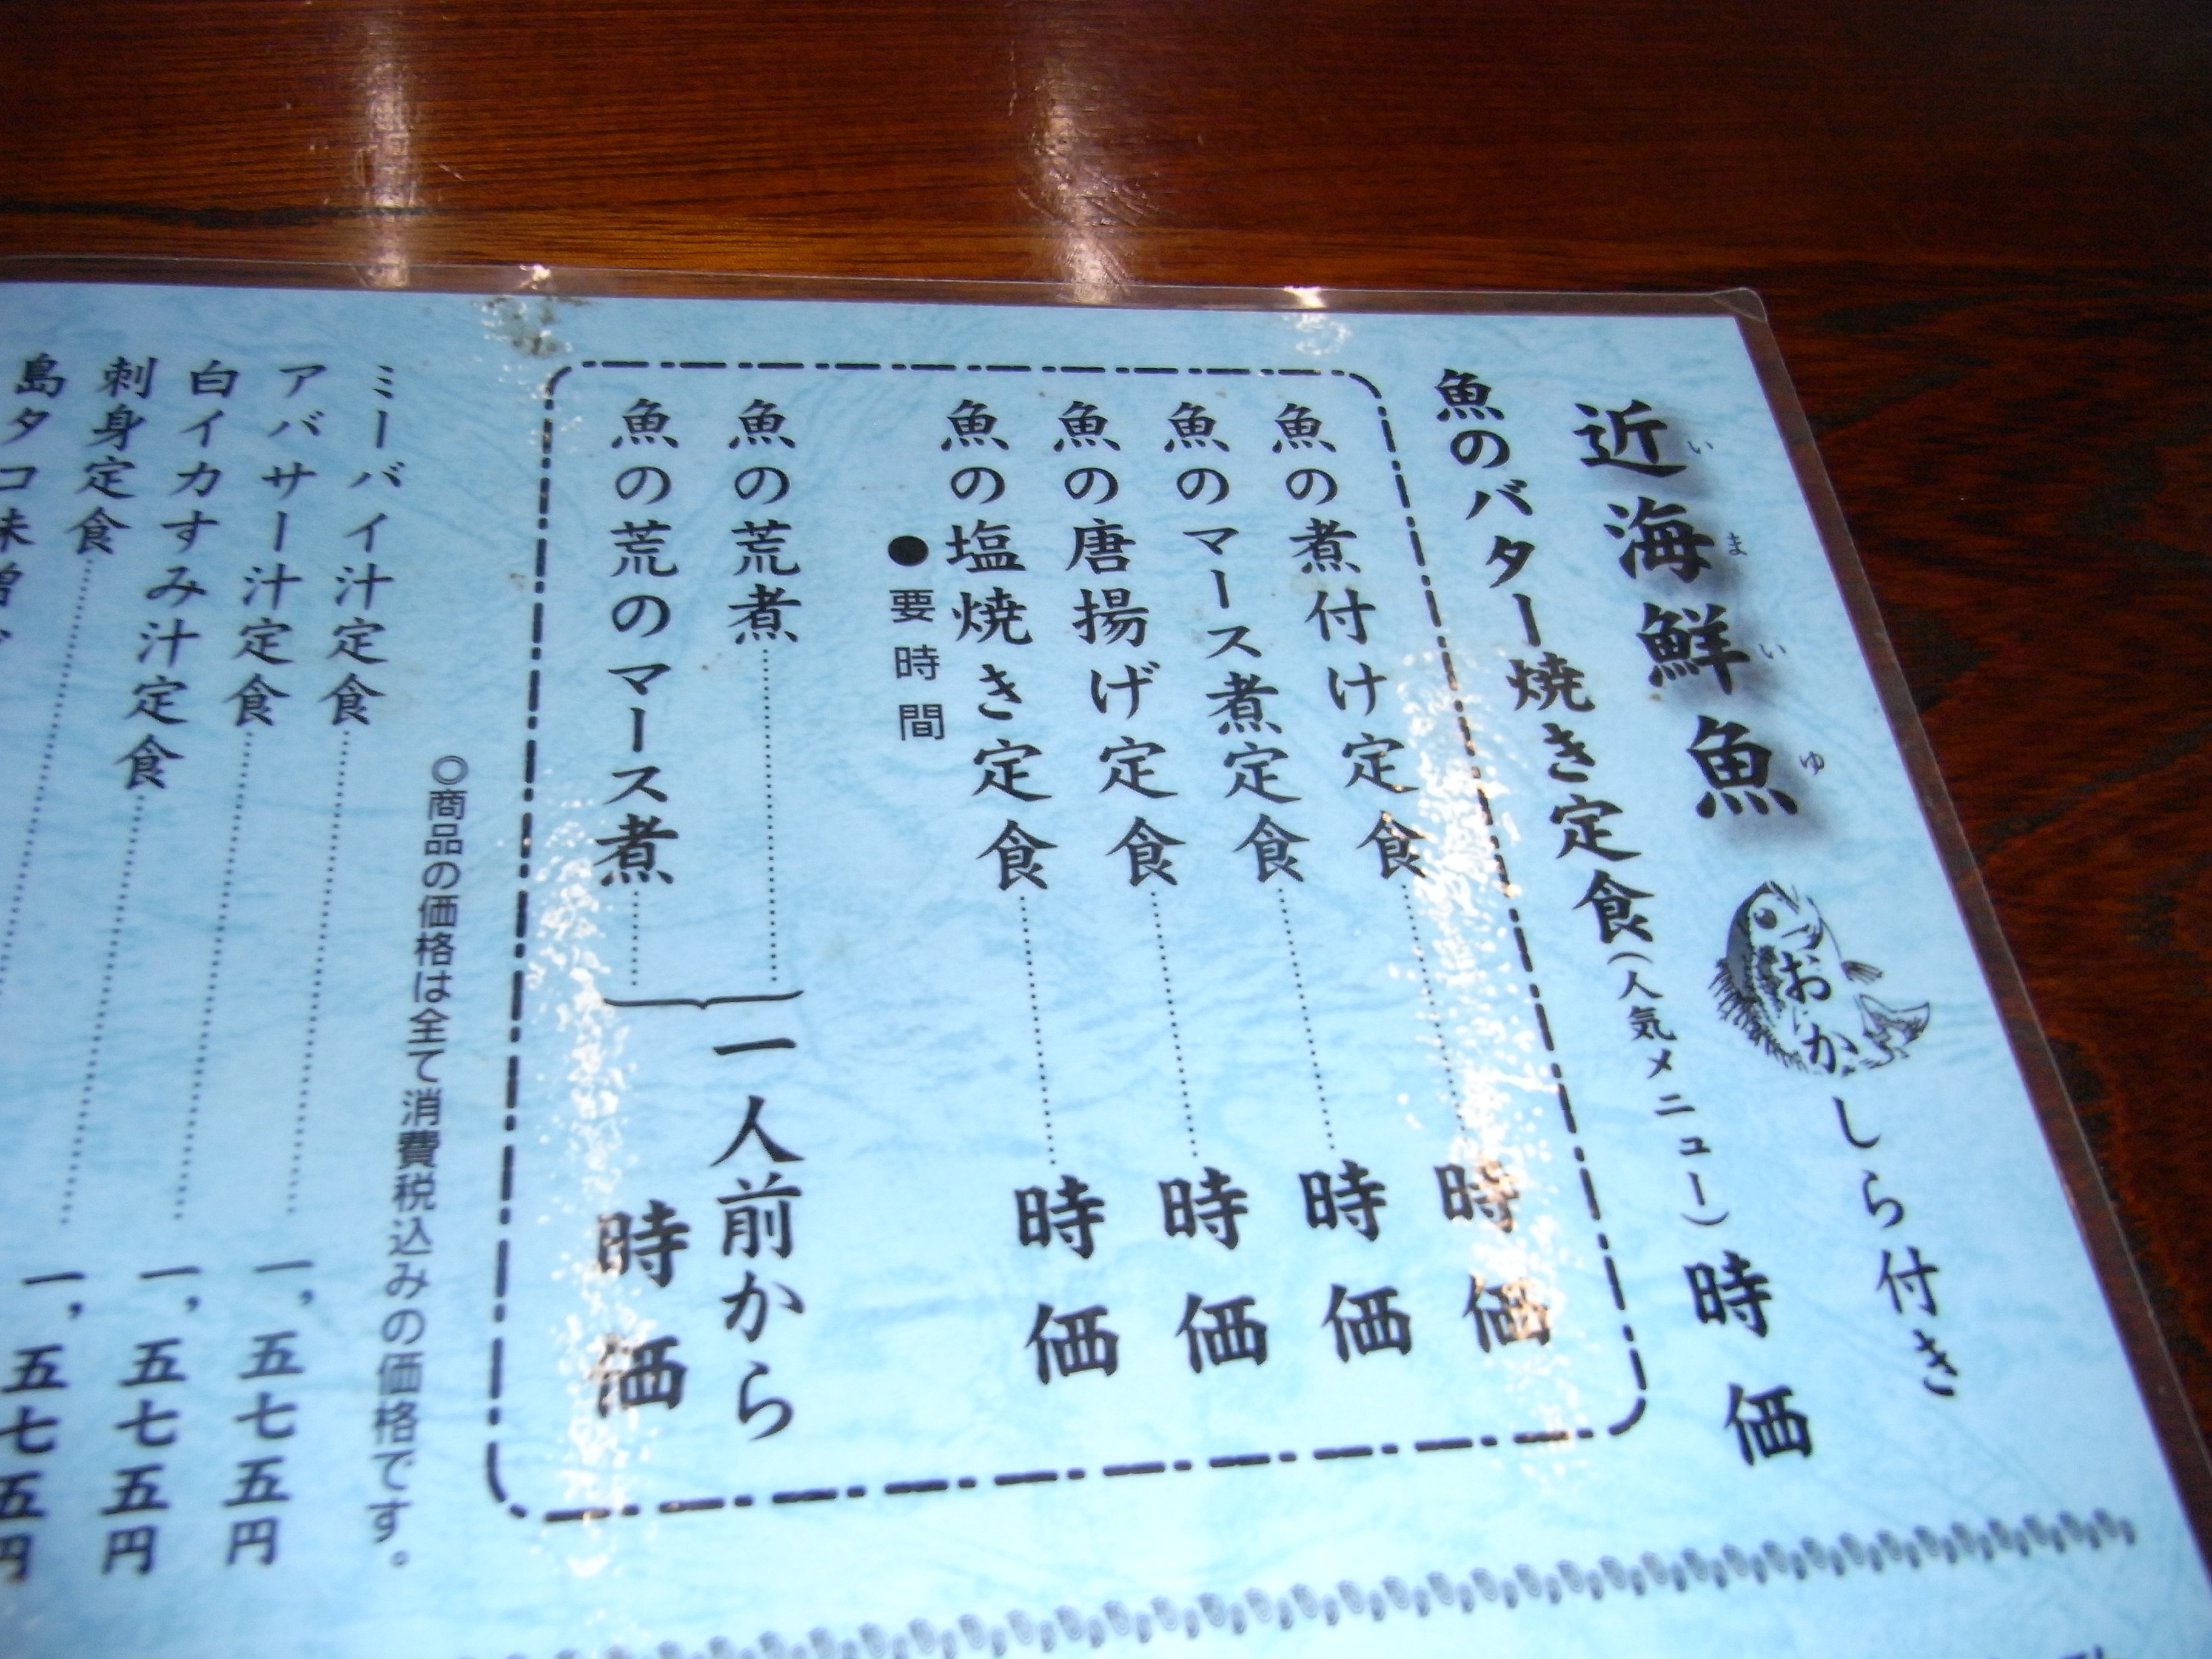 近海鮮魚 おかしら付き
いまいゆ
魚のバター焼き定食(人気メニュー)時価
魚の煮付け定食…………時価
魚のマース煮定食…………時価
魚の唐揚げ定食…………時価
魚の塩焼き定食…………時価
●要時間
魚の荒煮…………
魚の荒のマース煮……
一人前から
時価
◎商品の価格は全て消費税込みの価格です。
ミーバイ汁定食…………一,五七五円
アバサー汁定食…………一,五七五円
白イカすみ汁定食…………一,五七五円
刺身定食…………
島タコ味噌